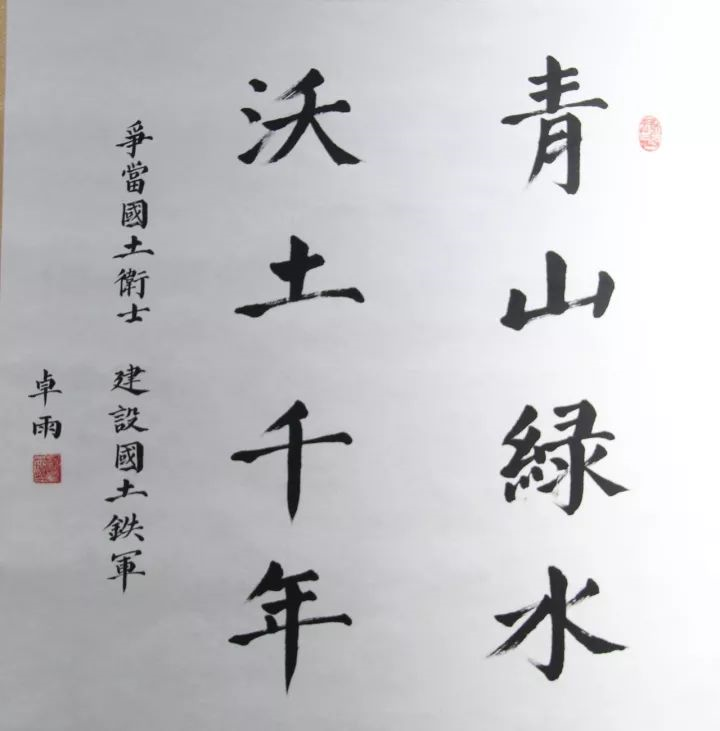 青山緑水
沃土千年
爭當國土衛士 建設國土鉄軍
卓雨